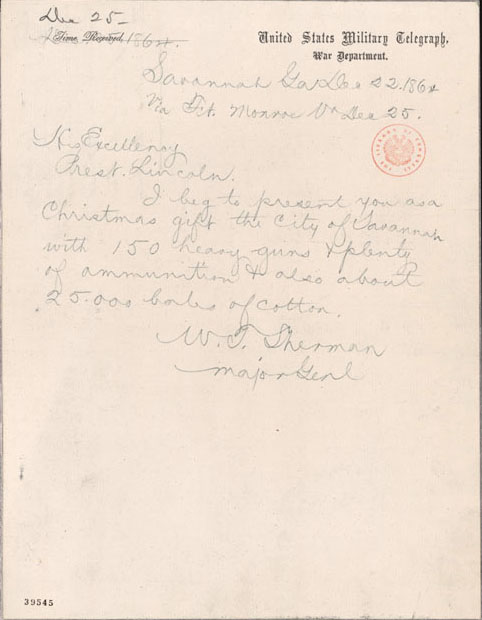 Dec 25-
Time Received, 1864.
United States Military Telegraph,
War Department.
Savannah Ga Dec 22. 1864
Via Ft. Monroe Va Dec 25.
His Excellency
Prest. Lincoln.
I beg to present you as a
Christmas gift the City of Savannah
with 150 heavy guns & plenty
of ammunition & also about
25.000 bales of cotton.
W. T. Sherman
Major Genl
THE LIBRARY OF CONGRESS
39545